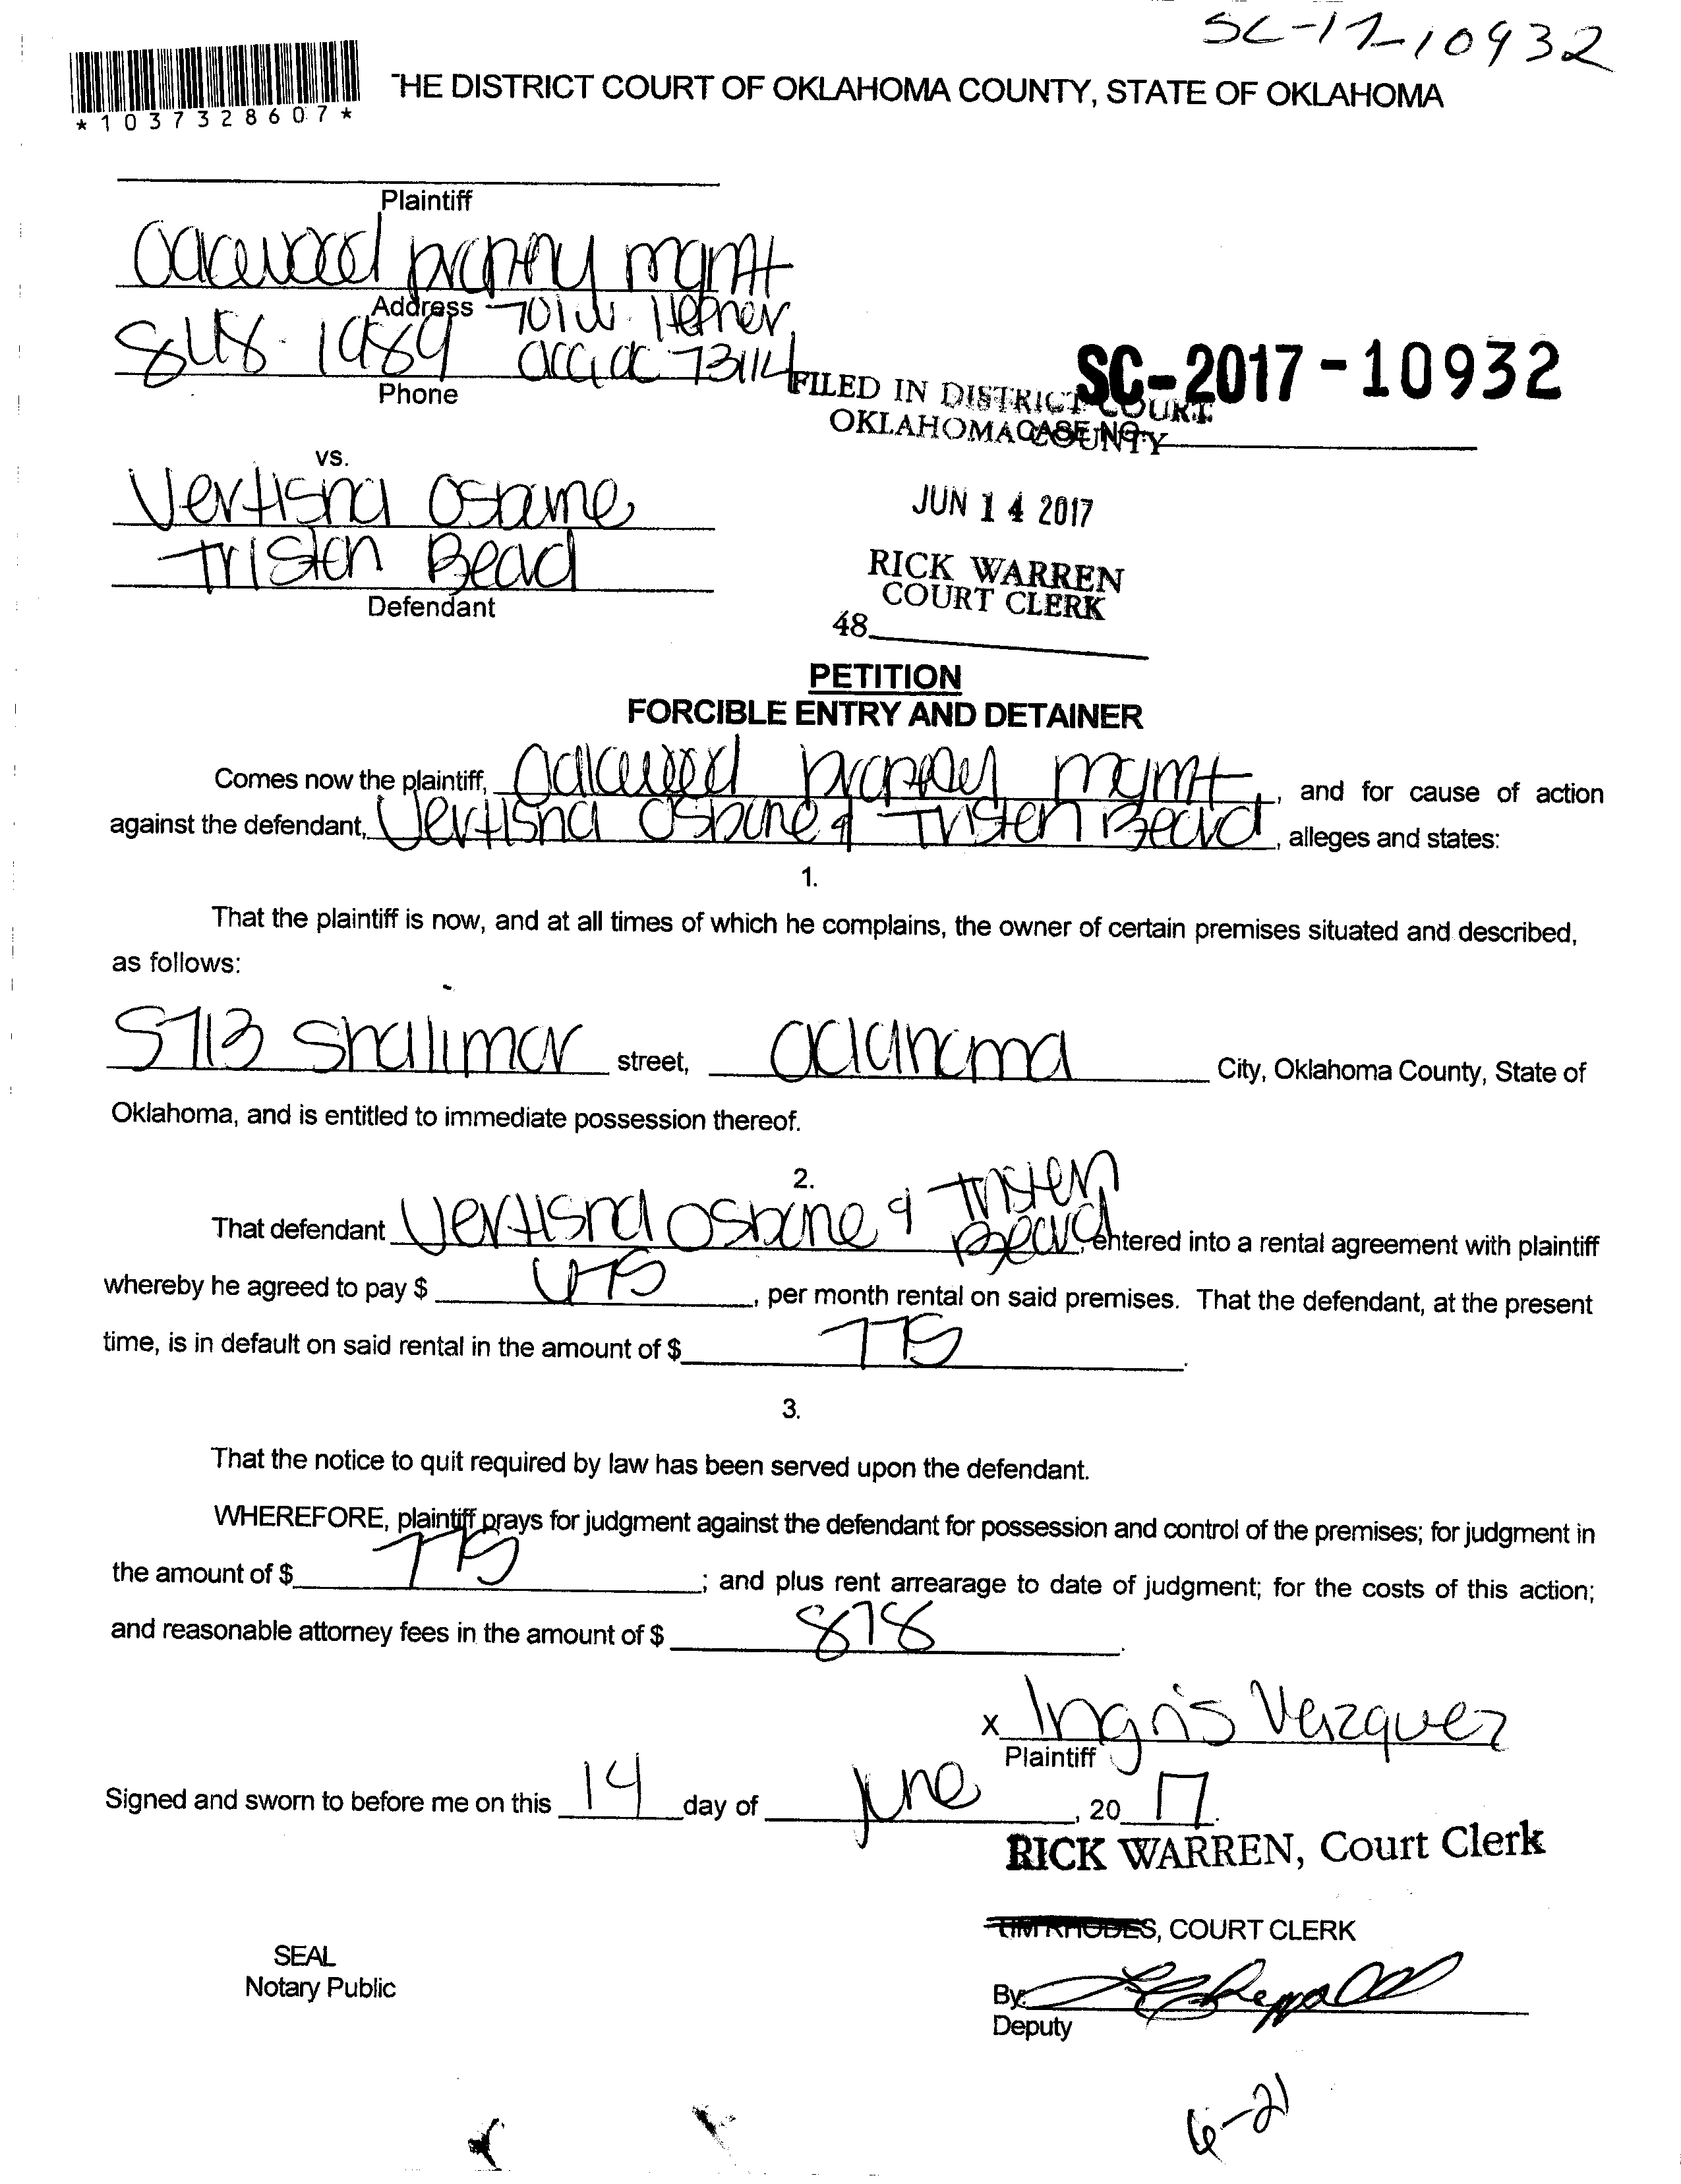 SC-17-10932
*1037328607*
THE DISTRICT COURT OF OKLAHOMA COUNTY, STATE OF OKLAHOMA
Plaintiff
Oakwood property mgmt
Address 701 W. Hefner
848-1989 OKC, OK 73114
Phone
SC-2017-10932
FILED IN DISTRICT COURT
OKLAHOMA COUNTY
CASE NO.
vs.
Vertisha Osborne
JUN 14 2017
Tristen Beard
Defendant
RICK WARREN
COURT CLERK
48
PETITION
FORCIBLE ENTRY AND DETAINER
Comes now the plaintiff, Oakwood property mgmt, and for cause of action
against the defendant, Vertisha Osborne & Tristen Beard, alleges and states:
1.
That the plaintiff is now, and at all times of which he complains, the owner of certain premises situated and described,
as follows:
5713 Shalimar street, Oklahoma City, Oklahoma County, State of
Oklahoma, and is entitled to immediate possession thereof.
2.
That defendant Vertisha Osborne & Tristen Beard, entered into a rental agreement with plaintiff
whereby he agreed to pay $ , per month rental on said premises. That the defendant, at the present
time, is in default on said rental in the amount of $ 775.
3.
That the notice to quit required by law has been served upon the defendant.
WHEREFORE, plaintiff prays for judgment against the defendant for possession and control of the premises; for judgment in
the amount of $ 775; and plus rent arrearage to date of judgment; for the costs of this action;
and reasonable attorney fees in the amount of $ 878.
x Ingris Vazquez
Plaintiff
Signed and sworn to before me on this 14 day of June, 20 17.
RICK WARREN, Court Clerk
TIM RHODES, COURT CLERK
SEAL
Notary Public
By:
Deputy
6-21